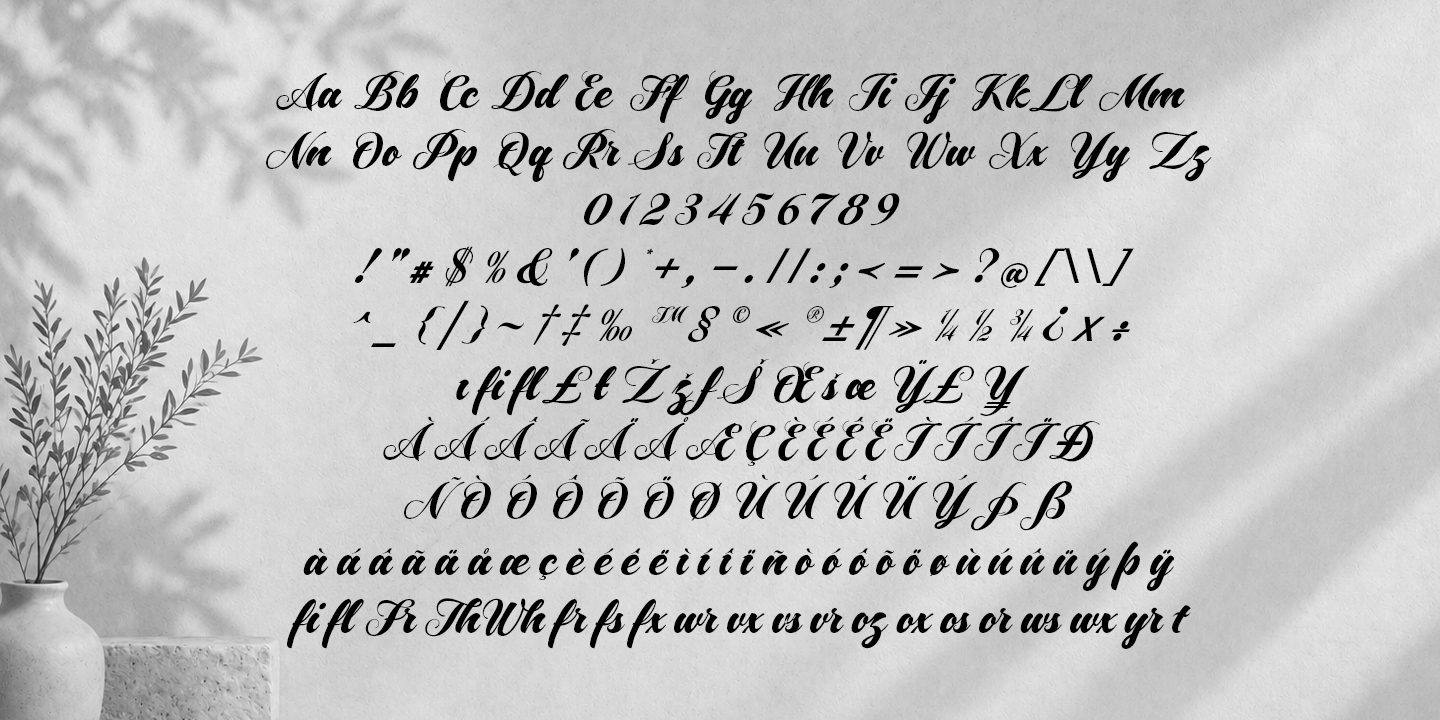 Aa Bb Cc Dd Ee Ff Gg Hh Ii Jj Kk Ll Mm
Nn Oo Pp Qq Rr Ss Tt Uu Vv Ww Xx Yy Zz
0 1 2 3 4 5 6 7 8 9
! " # $ % & ' ( ) * + , - . / / : ; < = > ? @ [ \ \ ]
^ _ { / } ~ † ‡ ‰ ™ § © « ® ± ¶ » ¼ ½ ¾ ¿ × ÷
ı fi fl £ ł Ž ž ƒ Š Œ š œ Ÿ £ ¥
À Á Â Ã Ä Å Æ Ç È É Ê Ë Ì Í Î Ï Ð
Ñ Ò Ó Ô Õ Ö Ø Ù Ú Û Ü Ý Þ ß
à á â ã ä å æ ç è é ê ë ì í î ï ñ ò ó ô õ ö ø ù ú û ü ý þ ÿ
fi fl Fr Th Wh fr fs fx wr vx vs vr oz ox os or ws wx yr t